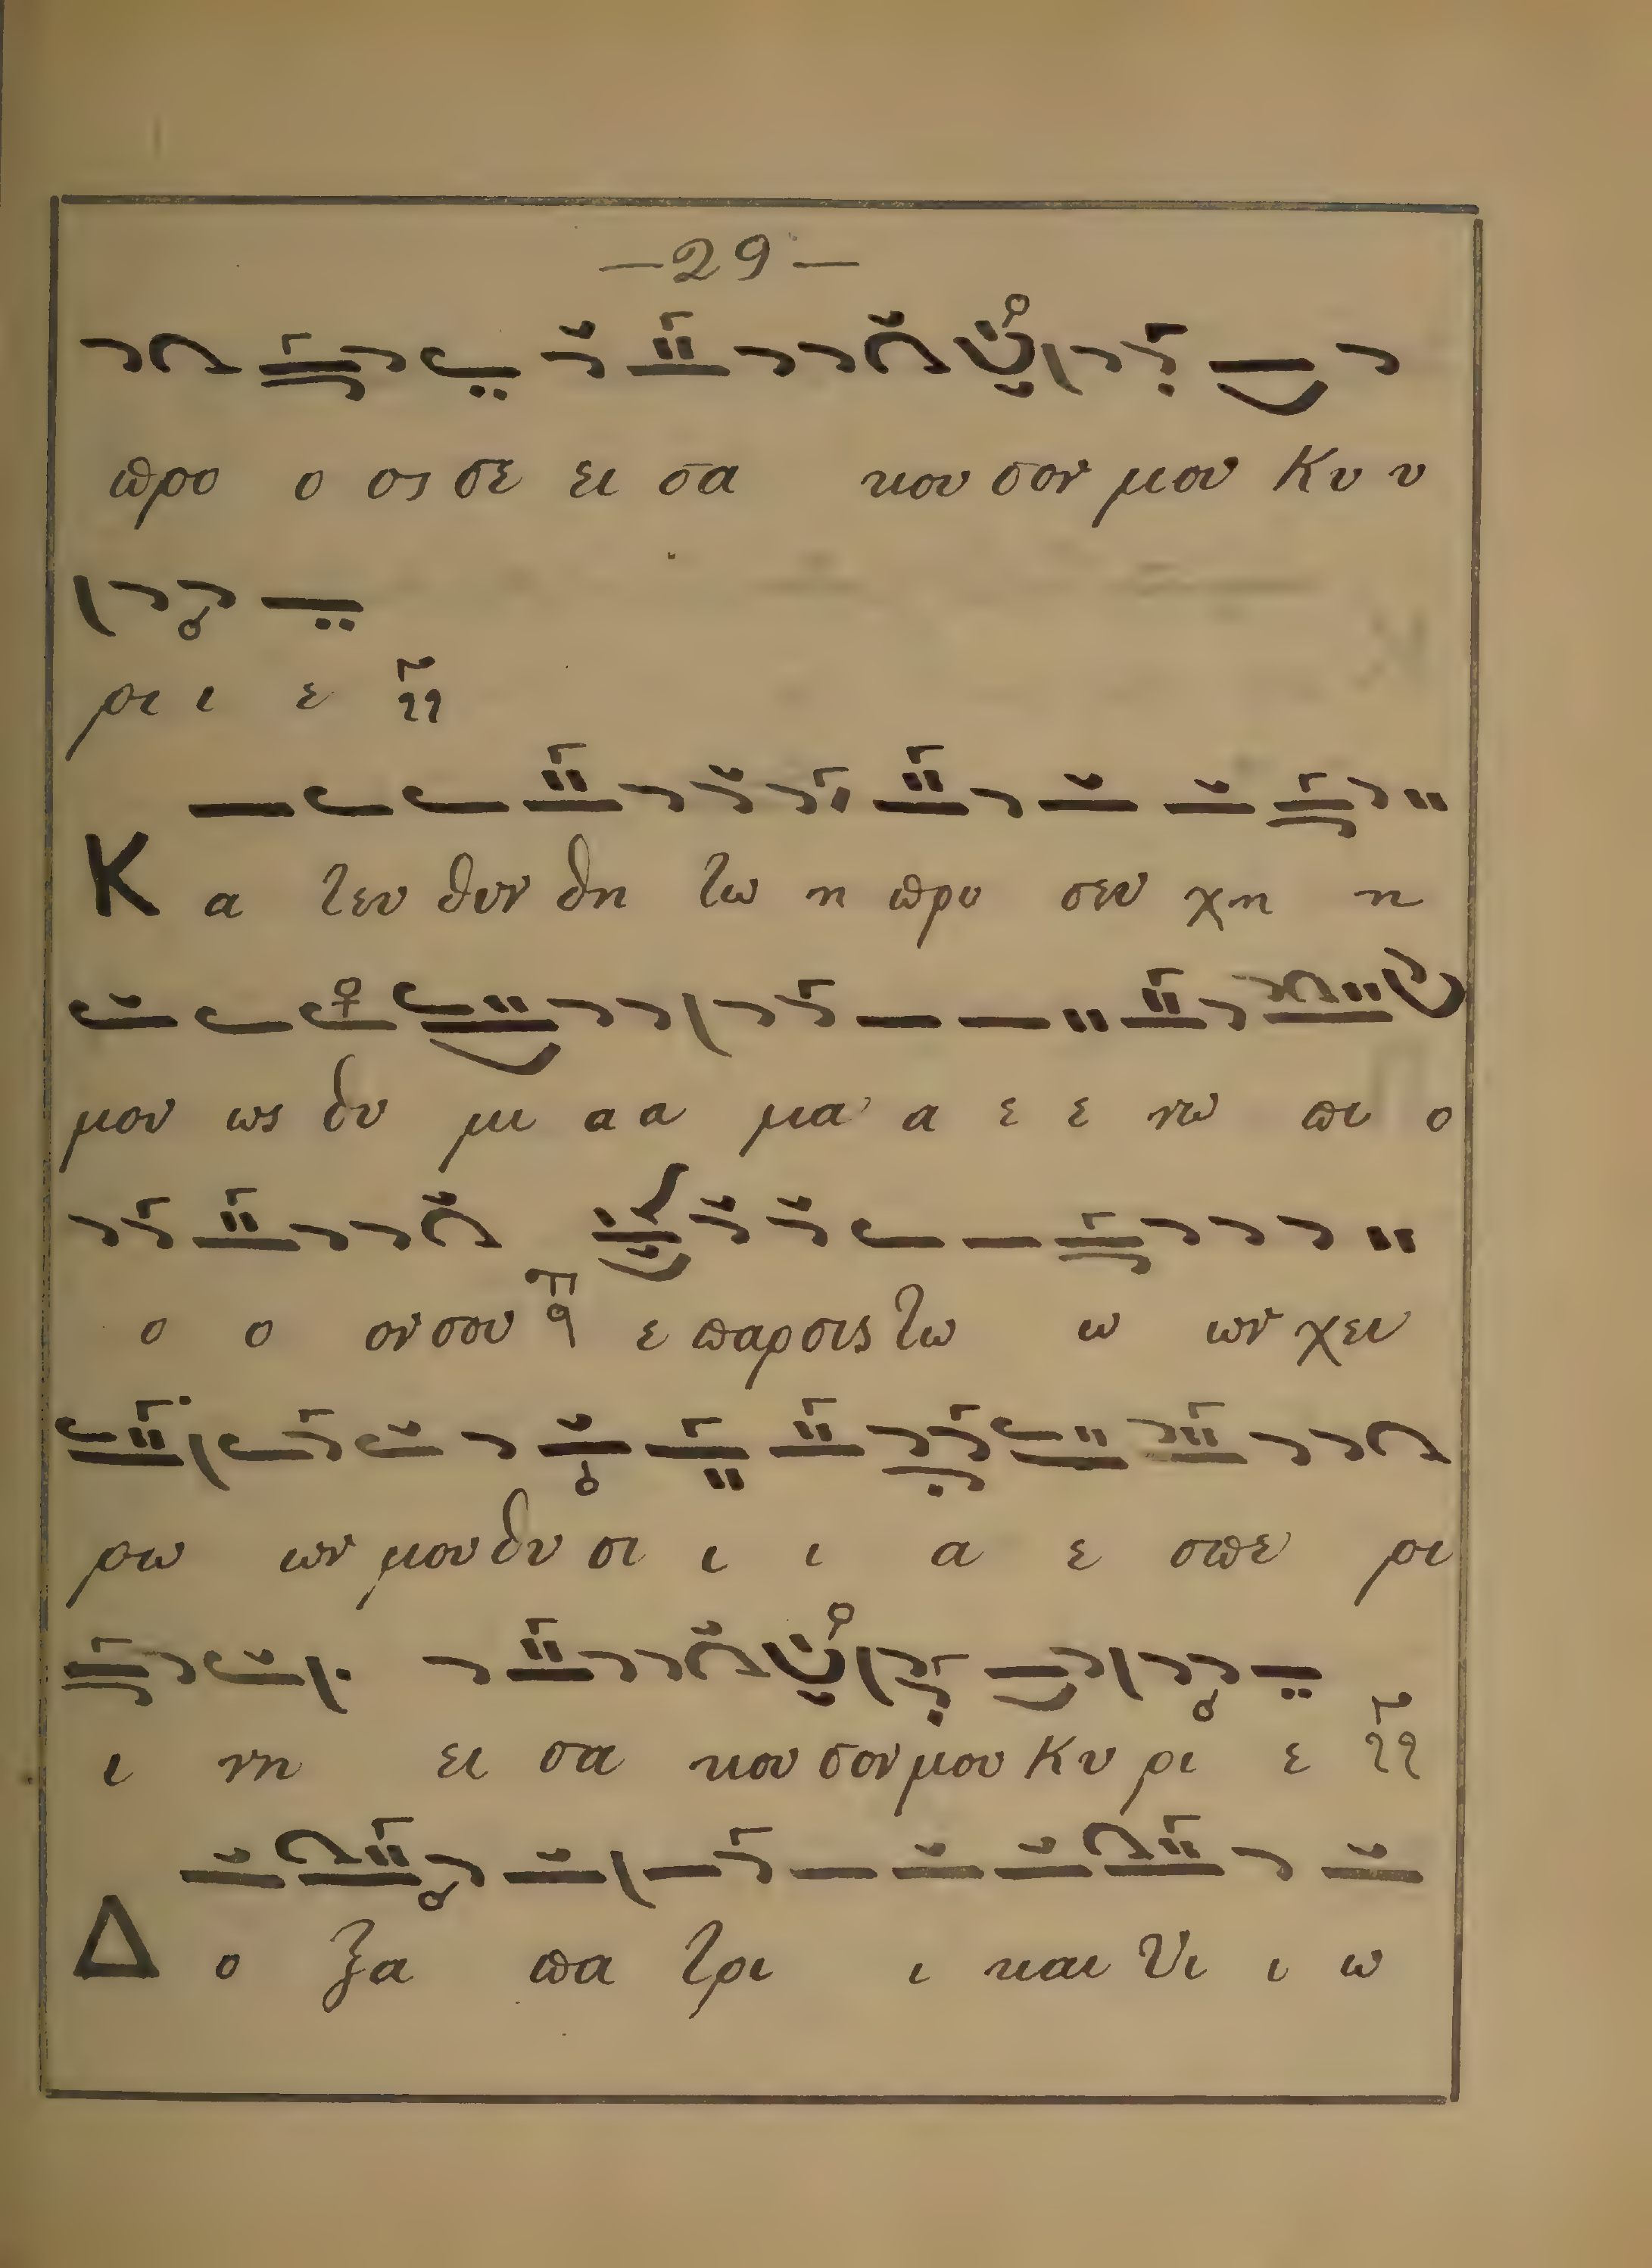 —29—
προ ο ος σε ει σα κου σον μου Κυ υ
ρι ι ε
Κ α τευ θυν θη τω η προ σευ χη η
μου ως θυ μι α α μα α ε ε νω πι ο
ο ο ον σου ε παρσις τω ω ων χει
ρω ων μου θυ σι ι ι α ε σπε ρι
ι νη ει σα κου σον μου Κυ ρι ε
Δ ο ξα πα τρι ι και Υι ι ω